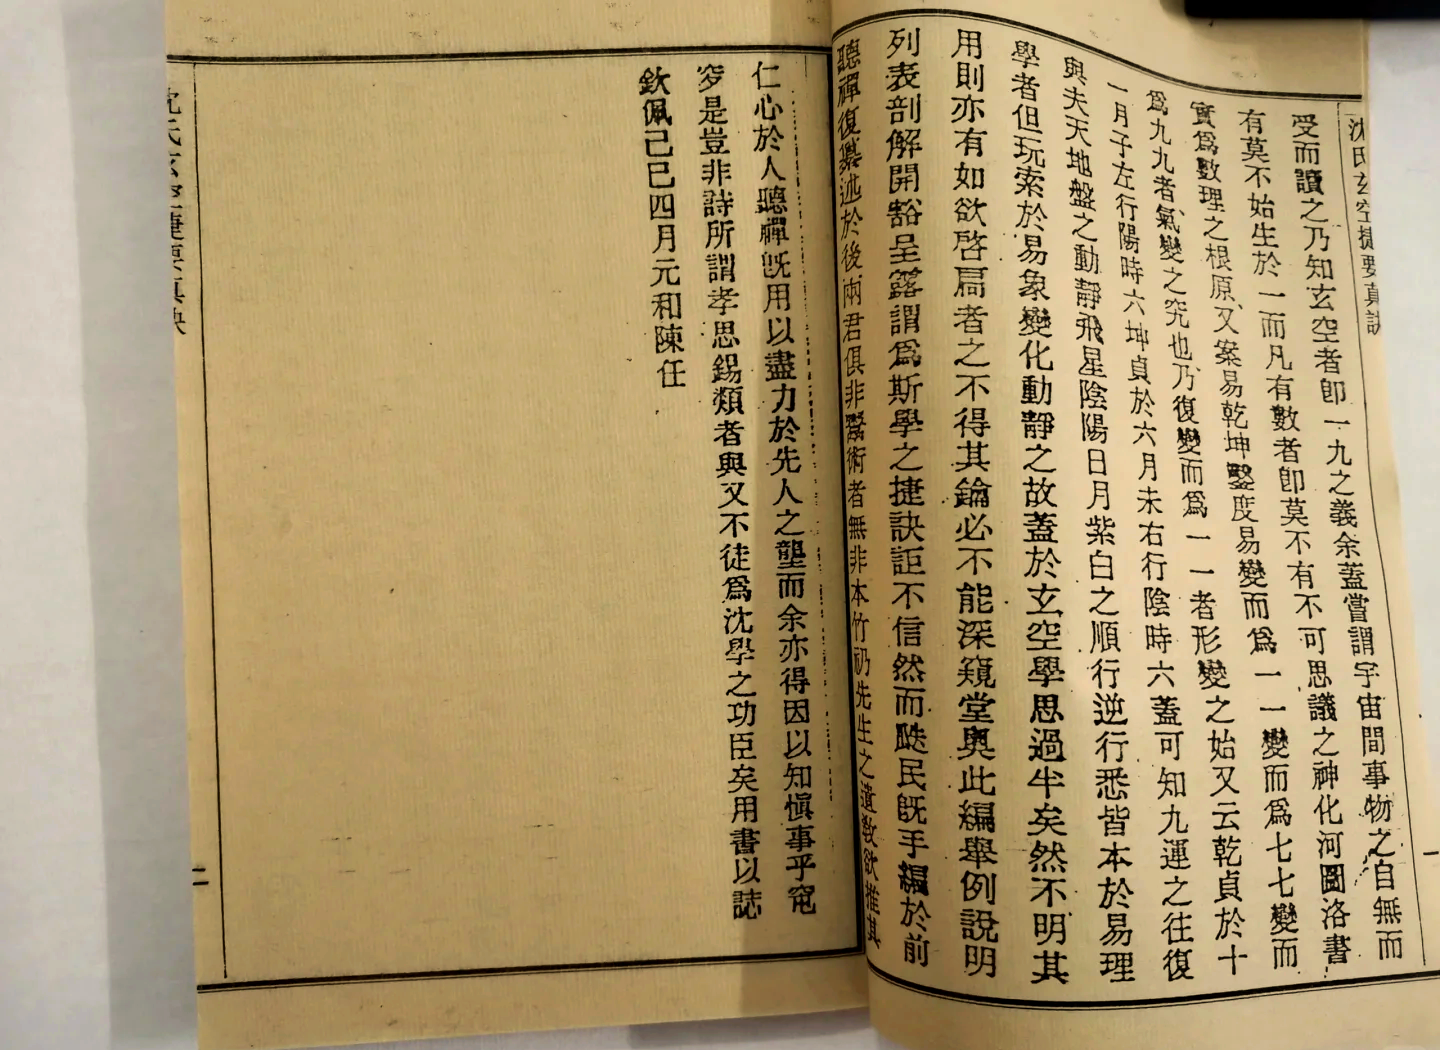 沈氏玄空捷要真訣
受而讀之乃知玄空者卽一九之義余蓋嘗謂宇宙間事物之自無而
有莫不始生於一而凡有數者卽莫不有不可思議之神化河圖洛書
實爲數理之根原又案易乾坤鑿度易變而爲一一變而爲七七變而
爲九九者氣變之究也乃復變而爲一一者形變之始又云乾貞於十
一月子左行陽時六坤貞於六月未右行陰時六蓋可知九運之往復
與夫天地盤之動靜飛星陰陽日月紫白之順行逆行悉皆本於易理
學者但玩索於易象變化動靜之故蓋於玄空學思過半矣然不明其
用則亦有如欲啓扃者之不得其鑰必不能深窺堂奧此編舉例說明
列表剖解開豁呈露謂爲斯學之捷訣詎不信然而飈民旣手編於前
聽禪復纂述於後兩君俱非鬻術者無非本竹礽先生之遺敎欲推其
仁心於人聽禪旣用以盡力於先人之壟而余亦得因以知愼事乎窀
穸是豈非詩所謂孝思錫類者與又不徒爲沈學之功臣矣用書以誌
欽佩己巳四月元和陳任
沈氏玄空捷要真訣
一
二